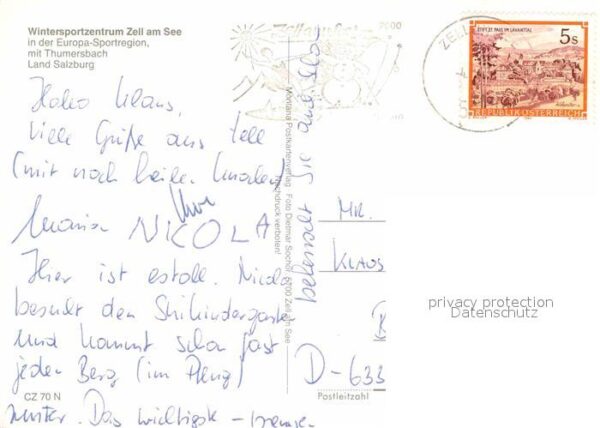 Wintersportzentrum Zell am See
in der Europa-Sportregion,
mit Thumersbach
Land Salzburg
Hallo Klaus,
viele Grüße aus Zell
(mit noch heilen Knochen)
Maria NICOLA
Hier ist es toll. Nicola
besucht den Skikindergarten
und kommt schon fast
jeden Berg (im Pflug)
runter. Das wichtigste - bremsen
beherrscht sie auch schon
CZ 70 N
Montana Postkartenverlag Foto Dietmar Sochor, 5700 Zell am See
Nachdruck verboten!
5700
ZELL
STIFT ST. PAUL IM LAVANTTAL
5s
REPUBLIK ÖSTERREICH
MR.
KLAUS
D-633
Postleitzahl
privacy protection
Datenschutz